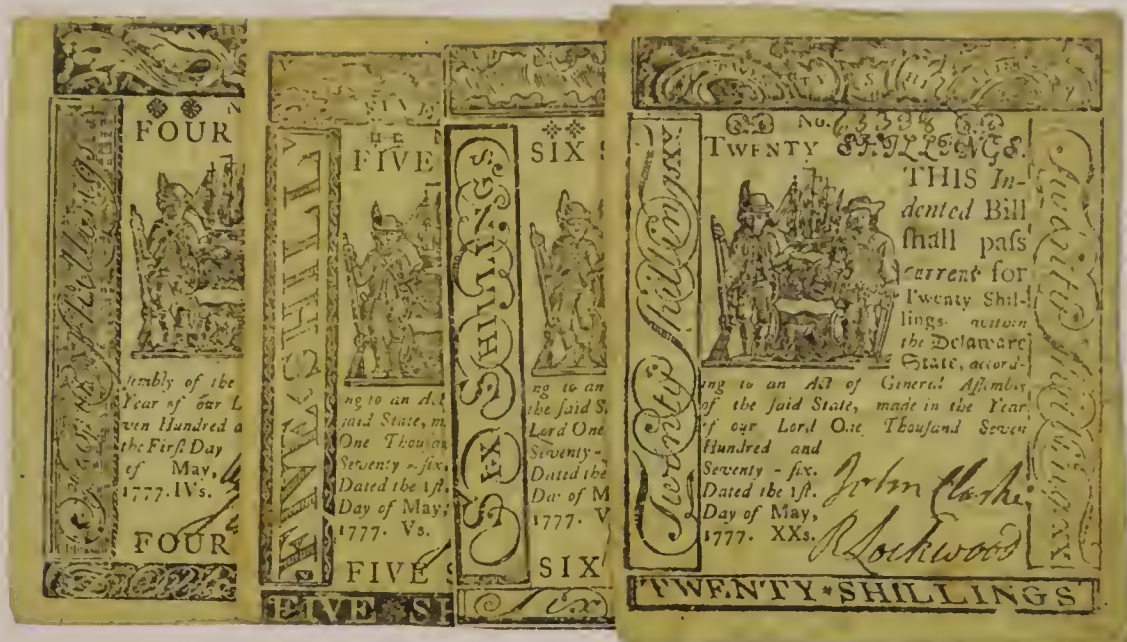 Four Shillings
FOUR
sembly of the
Year of our L
ven Hundred a
the First Day
of May,
1777. IVs.
FOUR
FIVE SHILL
FIVE
ng to an Act
said State, m
One Thousan
Seventy-six.
Dated the 1st.
Day of May,
1777. Vs.
FIVE S
FIVE SH
SIX SHILLINGS
SIX S
ng to an
the said S
Lord One
Seventy-
Dated the
Day of M
1777. V
SIX
Six
Twenty Shillings XX.
No. 63398
TWENTY SHILLINGS.
THIS In-
dented Bill
ſhall paſs
current for
Twenty Shil-
lings. within
the Delaware
State, accord-
ing to an Act of General Aſſembly
of the ſaid State, made in the Year
of our Lord One Thouſand Seven
Hundred and
Seventy-ſix.
Dated the 1ſt.
Day of May,
1777. XXs.
John Clarke
R Lockwood
Twenty Shillings XX
TWENTY*SHILLINGS